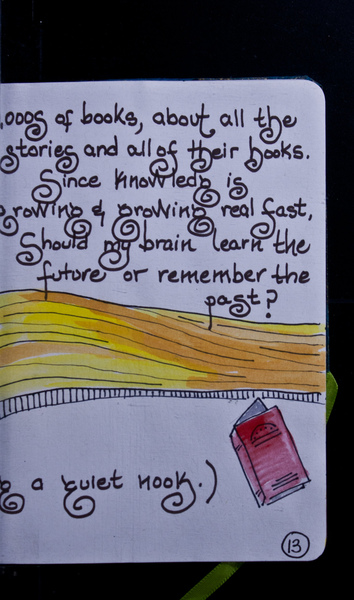 000s of books, about all the
stories and all of their books.
Since knowledg is
rowing & growing real fast,
Should my brain learn the
future or remember the
past?
g a quiet nook.)
13